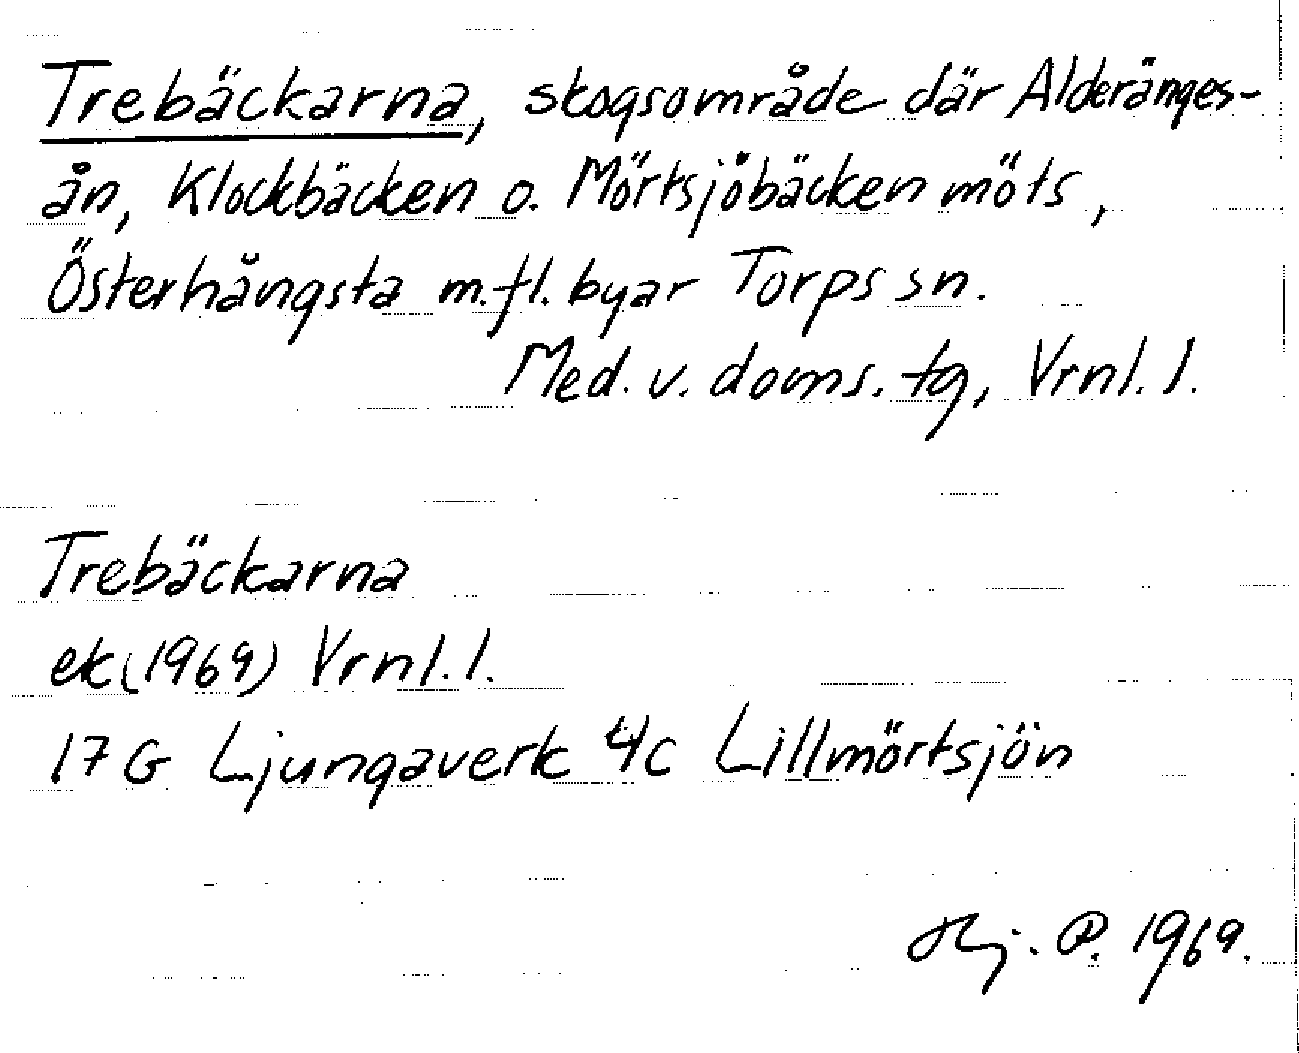 Trebäckarna, skogsområde där Alderänges-
ån, Klockbäcken o. Mörtsjöbäcken möts,
Österhångsta m.fl. byar Torps sn.
Med. v. doms. tg, Vrnl. l.
Trebäckarna
ek (1969) Vrnl. l.
17 G Ljungaverk 4c Lillmörtsjön
Hj. P. 1969.